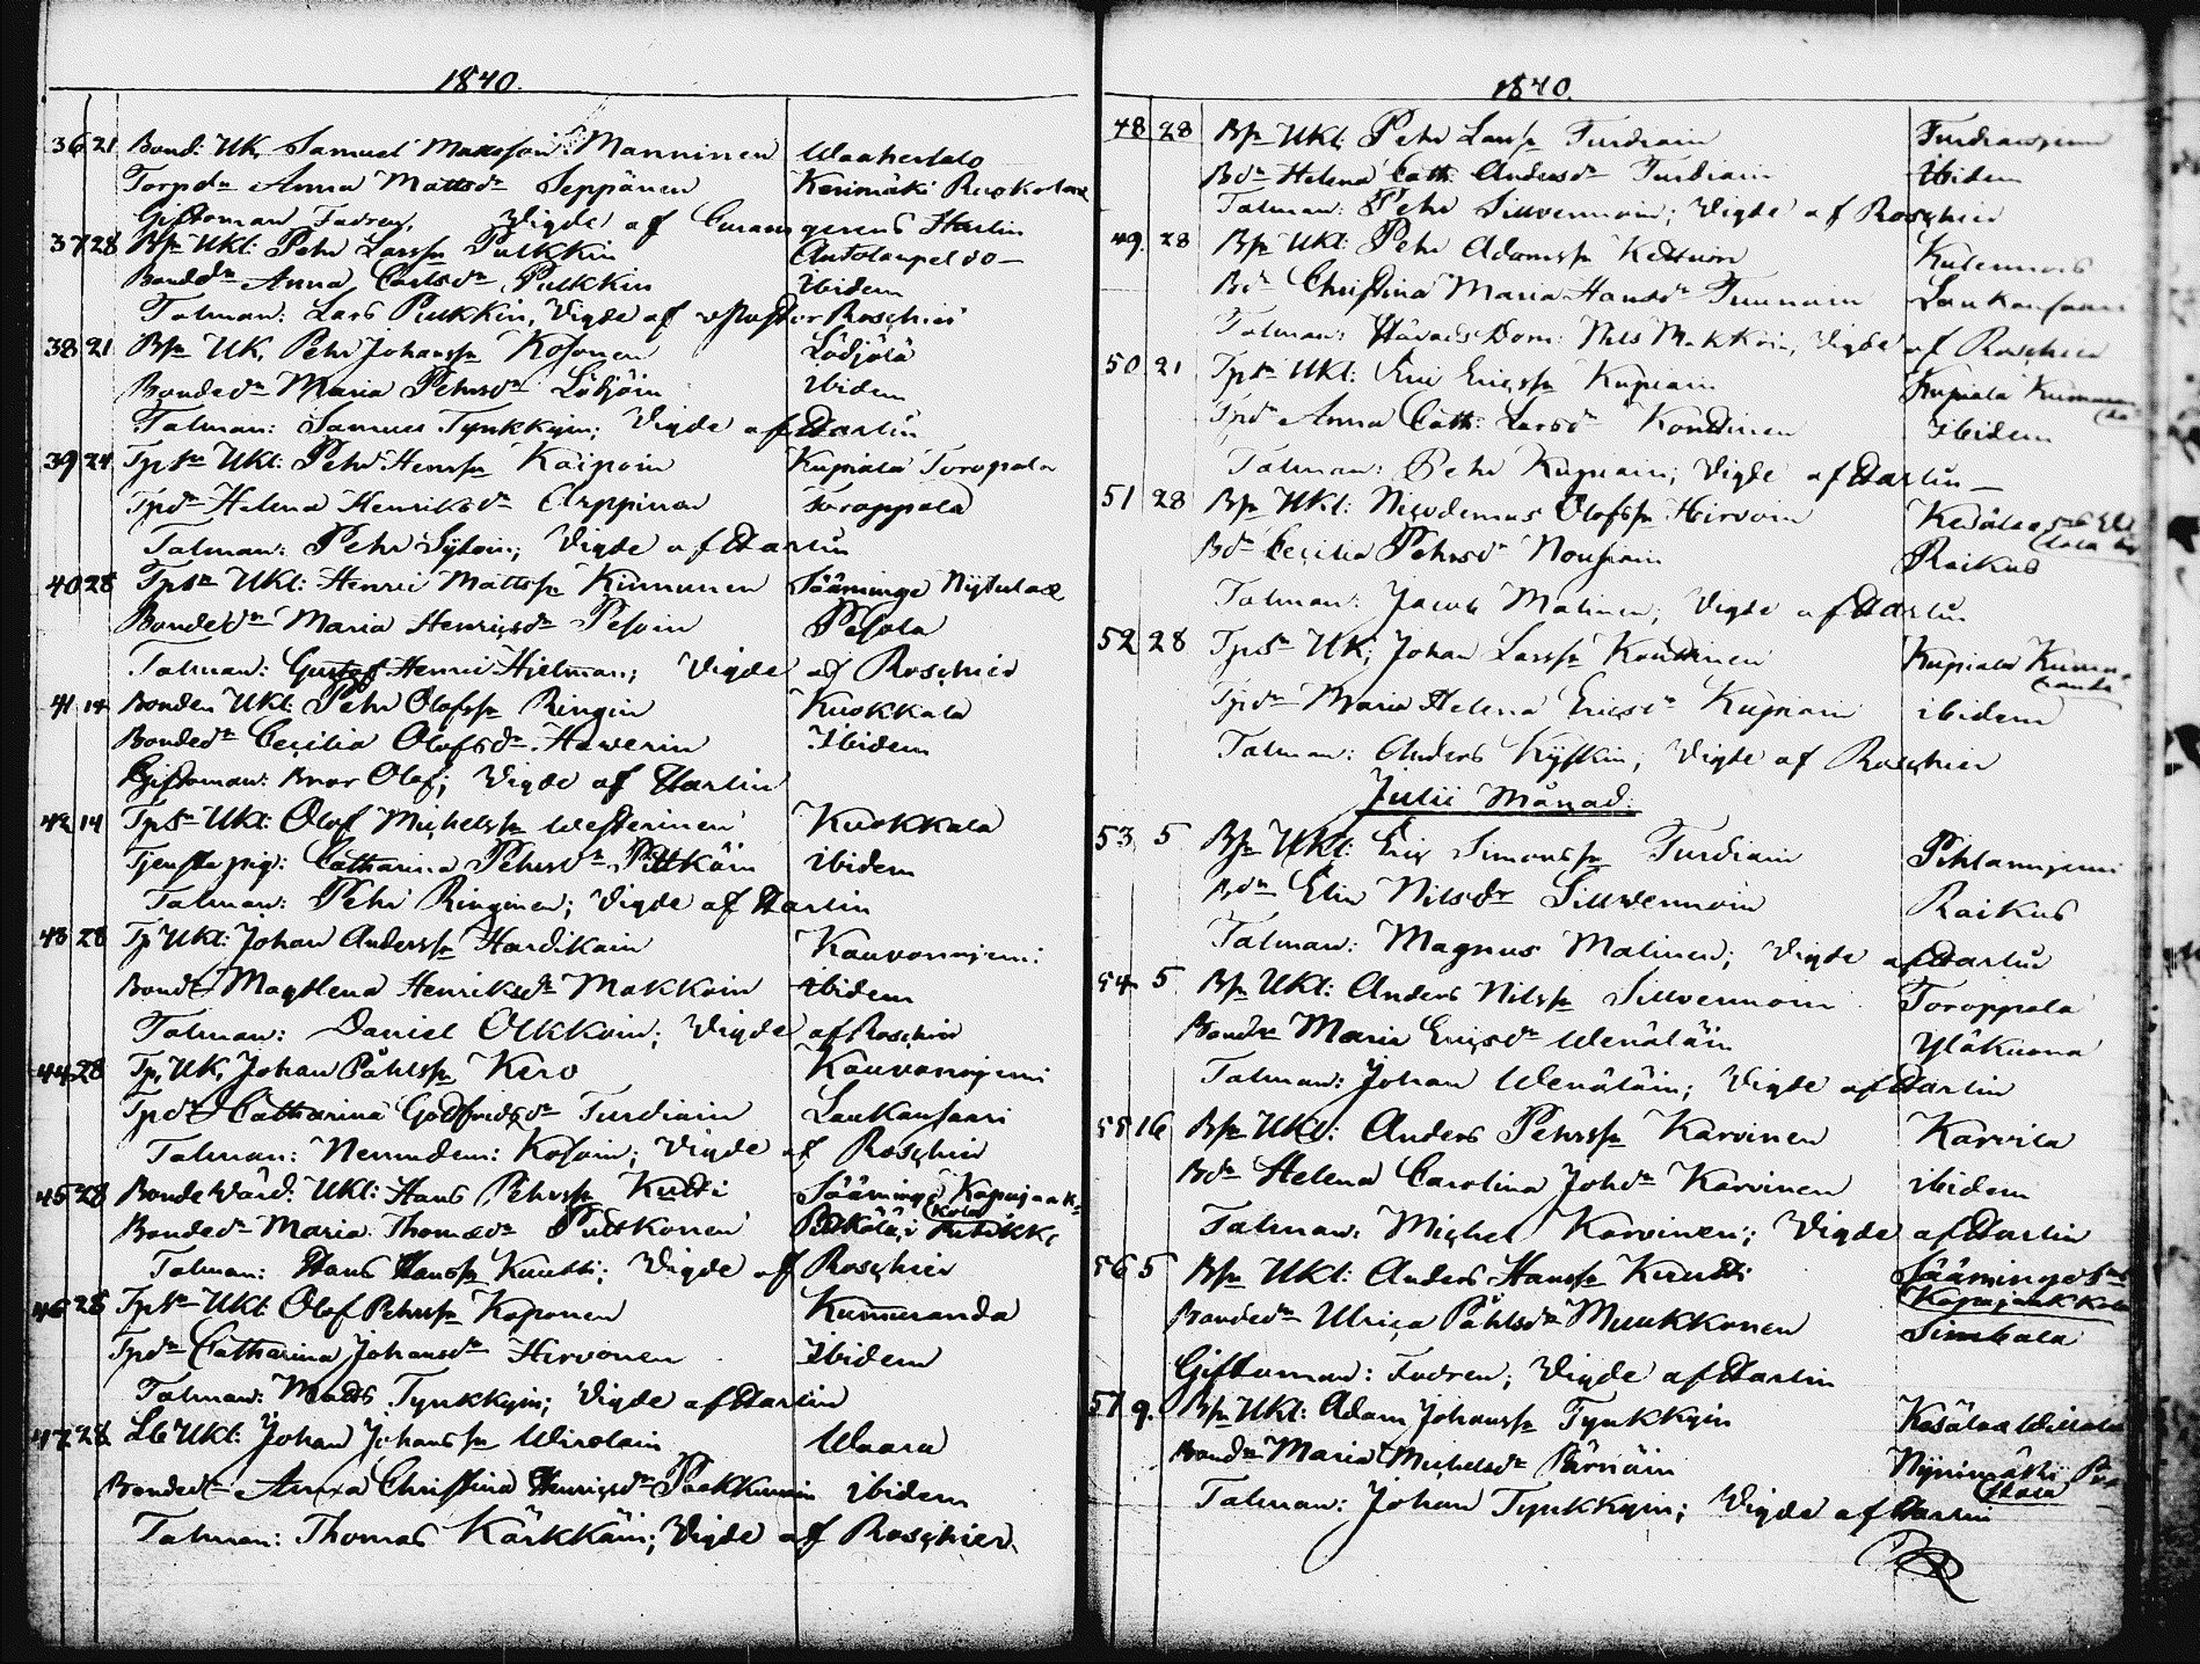 1840.
36 21 Bond: UK, Samuel Mansson Manninen Waahersalo
Torpdn Anna Mattsdn Seppänen Kerimäki Ruokolax
Giftoman Fadren, Vigde af Curam gerens Harlin
37 28 Bsn UKl: Pehr Larssn Pulkkin Auvolanpeldo —
Bonddn Anna Carlsdn Pulkkin Ibidem
Talman: Lars Pulkkin, Vigde af Pastor Roschier
38 21 Bsn UK, Pehr Johanssn Kosonen Lödjölä
Bondedn Maria Pehrsdn Lödjöin ibidem
Talman: Samuel Tynkkyin; Vigde af Harlin
39 24 Tpsn UKl: Pehr Henrssn Kaipain Kupiala Toropala
Tpdn Helena Henriksdn Arppinen Toroppala
Talman: Pehr Syloin; Vigde af Harlin
40 28 Tpsn UKl: Henric Mattssn Kimmunen Sääminge Nyslax
Bondedn Maria Henricsdn Pesoin Pesola
Talman: Gustaf Henric Hjelman; Vigde af Roschier
41 14 Bonden UKl: Pehr Olofssn Ringin Kuokkala
Bondedn Cecilia Olofsdn Hawerin Ibidem
Giftoman: Bror Olof; Vigde af Harlin
42 14 Tpsn UKl: Olof Michelssn Westerinen Kuokkala
Tjenstepig: Catharina Pehrsdn Pitkäin ibidem
Talman: Pehr Ringinen; Vigde af Harlin
43 28 Tp UKl: Johan Anderssn Hardikain Kauvonnjemi
Bondd Magdlena Henriksdn Makkoin ibidem
Talman: Daniel Olkkoin; Vigde af Roschier
44 28 Tp, UK, Johan Påhlssn Kero Kauvonnjemi
Tpdr Catharina Godfridsdn Turdiain Laukansaari
Talman: Kosoin; Vigde af Roschier
45 28 Bonde UKl: Hans Pehrssn Kutti Sääminge Kapujack=
kola
Bondedn Maria Thomasdn Putkonen
Talman: Hans Hanssn Kuutti; Vigde af Roschier
46 28 Tpsn UKl: Olof Pehrssn Koponen Kummuranda
Tpdn Catharina Johansdn Hirvonen Ibidem
Talman: Matts Tynkkyin; Vigde af Harlin
47 28 UKl: Johan Johanssn Wirolain Waara
Bondedn Anna Christina Henricsdn Paakkunain ibidem
Talman: Thomas Kärkkäin; Vigde af Roschier
1840.
48 28 Bsn UKl: Pehr Larssn Turdiain Turdiansjemi
Bdn Helena Cath: Andersdn Turdiain Ibidem
Talman: Pehr Sillvennoin; Vigde af Roschier
49. 28 Bsn UKl: Pehr Adamssn Kettuin Kulennois
Bdn Christina Maria Hansdn Tuunain Laukansaari
Talman: HäradsDom: Nils Makkoin, Vigde af Roschier
50 21 Tpsn UKl: Eric Ericssn Kupiain Kupiala Kummuran
da
Tpdn Anna Cath: Larsdn Konttinen Ibidem
Talman: Pehr Kupiain; Vigde af Harlin —
51 28 Bsn UKl: Nicodemus Olofssn Hirvoin Kesälax
Bdn Cecilia Pehrsdn Nousiain Raikus
Talman: Jacob Malinen; Vigde af Harlin
52 28 Tpsn UK; Johan Larssn Konttinen Kupiala Kummu-
randa
Tpdn Maria Helena Ericsdn Kupiain ibidem
Talman: Anders Kyllkin; Vigde af Roschier
Julii Månad:
53 5 Bsn UKl: Eric Simonssn Turdiain Pihlannjemi
Bdn Elin Nilsdr Sillvennoin Raikus
Talman: Magnus Malinen; Vigde af Harlin
54 5 Bsn UKl: Anders Nilssn Sillvennoin Toroppala
Bonddn Maria Ericsdn Wenäläin Yläkuona
Talman: Johan Wenäläin; Vigde af Harlin
55 16 Bsn UKl: Anders Pehrssn Karvinen Karvila
Bdn Helena Carolina Johdn Karvinen ibidem
Talman: Michel Karvinen; Vigde af Harlin
56 5 Bsn UKl: Anders Hanssn Kuutti Sääminge Sn
Kapujackkola
Bondedn Ulrica Påhlsdn Muukkonen Simbala
Giftoman: Fadren; Vigde af Harlin
57 9. Bsn UKl: Adam Johanssn Tynkkyin Kesälax Willala
Bonddn Maria Michelsdn Pärnäin Nynimäki
Talman: Johan Tynkkyin; Vigde af Harlin